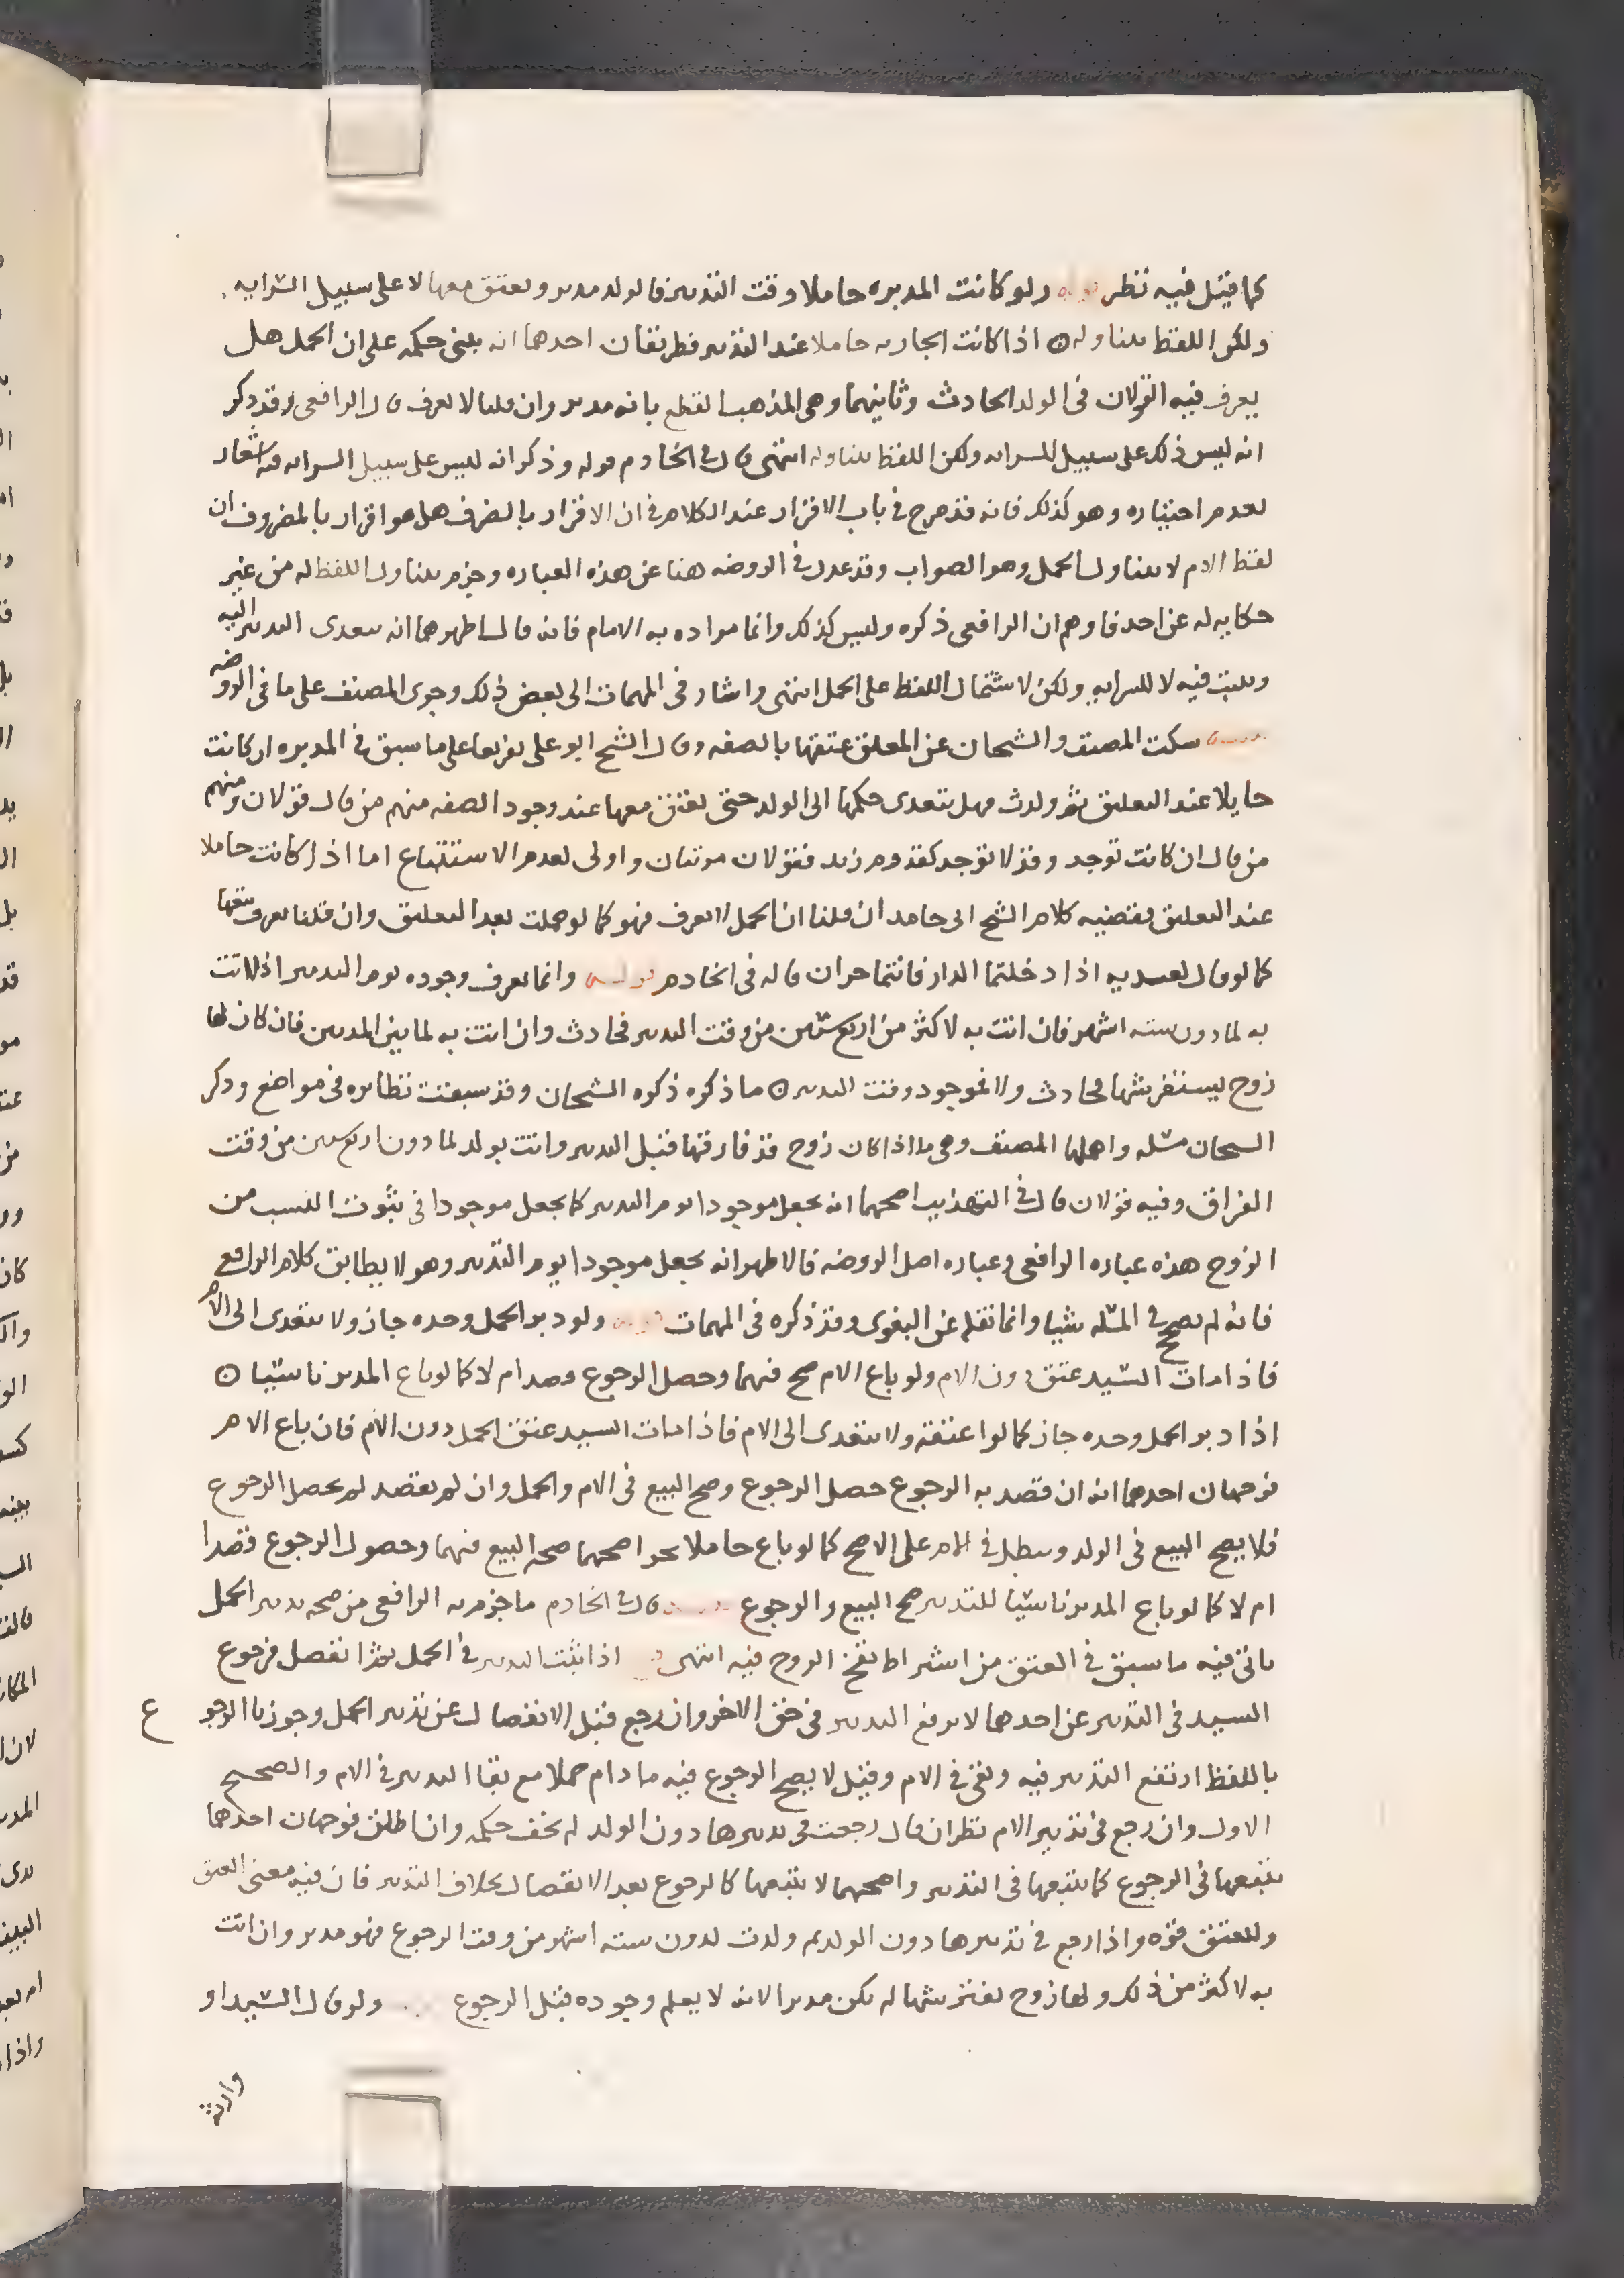 كما قيل فيه نظر قوله ولو كانت المدبره حاملا وقت التدبير فالولد مدبر ويعتق معها لا على سبيل السرايه
ولكن اللفظ يتناوله ⊙ اذا كانت الجاريه حاملا عند التدبير فطريقان احدهما انه يبنى حكمه على ان الحمل هل
يعرف فيه القولان فى الولد الحادث وثانيهما وهى المذهب القطع بانه مدبر وان قلنا لا يعرف قال الرافعى وقد ذكر
انه ليس ذلك على سبيل السرايه ولكن اللفظ يتناوله انتهى قال فى الخادم قوله وذكر انه ليس على سبيل السرايه فيه اشعار
لعدم اختياره وهو كذلك فانه قد صرح فى باب الاقرار عند الكلام فى ان الاقرار بالضرف هل هو اقرار بالمضروف ان
لفظ الام لا يتناول الحمل وهو الصواب وقد عدل فى الروضه هنا عن هذه العباره وجزم بتناول اللفظ له من غير
حكايه له عن احد فاوهم ان الرافعى ذكره وليس كذلك وانما مراده به الامام فانه قال اظهرهما انه يتعدى التدبير اليه
ويثبت فيه لا للسرايه ولكن لاشتمال اللفظ على الحمل انتهى واشار فى المهمات الى بعض ذلك وجرى المصنف على ما فى الروضه
سكت المصنف والشيخان عن المعلق عتقها بالصفه وقال الشيخ ابو على تفريعا على ما سبق فى المدبره ان كانت
حايلا عند التعليق ثم ولدت فهل يتعدى حكمها الى الولد حتى يعتق معها عند وجود الصفه منهم من قال قولان ومنهم
من قال ان كانت توجد وقد لا توجد كقدوم زيد فقولان مرتبان واولى لعدم الاستتباع اما اذا كانت حاملا
عند التعليق فقضيه كلام الشيخ ابى حامد ان قلنا ان الحمل لا يعرف فهو كما لو حملت بعد التعليق وان قلنا يعرف تبعها
كما لو قال لعبديه اذا دخلتما الدار فانتما حران قاله فى الخادم قوله وانما يعرف وجوده يوم التدبير اذا اتت
به لما دون سته اشهر فان اتت به لاكثر من اربع سنين من وقت التدبير فحادث وان اتت به لما بين المدتين فان كان لها
زوج يستفرشها فحادث والا فموجود وقت التدبير ⊙ ما ذكره ذكره الشيخان وقد سبقت نظائره فى مواضع وذكر
الشيخان مسئله واهملها المصنف وهى ما اذا كان زوج قد فارقها قبل التدبير واتت بولد لما دون اربع سنين من وقت
الفراق وفيه قولان قال فى التهذيب اصحهما انه يجعل موجودا يوم التدبير كما يجعل موجودا فى ثبوت النسب من
الزوج هذه عباره الرافعى وعباره اصل الروضه فالاظهر انه يجعل موجودا يوم التدبير وهو لا يطابق كلام الرافعى
فانه لم يصحح فى المسئله شيا وانما نقله عن البغوى وقد ذكره فى المهمات ولو دبر الحمل وحده جاز ولا يتعدى الى الام
فاذا مات السيد عتق دون الام ولو باع الام صح فيهما وحصل الرجوع قصد ام لا كما لو باع المدبر ناسيا ⊙
اذا دبر الحمل وحده جاز كما لو اعتقه ولا يتعدى الى الام فاذا مات السيد عتق الحمل دون الام فان باع الام
فوجهان احدهما انه ان قصد به الرجوع حصل الرجوع وصح البيع فى الام والحمل وان لم يقصد لم يحصل الرجوع
فلا يصح البيع فى الولد ويبطل فى الام على الاصح كما لو باع حاملا بحر اصحهما صحه البيع فيهما وحصول الرجوع قصدا
ام لا كما لو باع المدبر ناسيا للتدبير صح البيع والرجوع قال فى الخادم ما جزم به الرافعى من صحه تدبير الحمل
ياتى فيه ما سبق فى العتق من اشتراط نفخ الروح فيه انتهى اذا ثبت التدبير فى الحمل ثم انفصل فرجوع
السيد فى التدبير عن احدهما لا يرفع التدبير فى حق الاخر وان رجع قبل الانفصال عن تدبير الحمل وجوزنا الرجوع
باللفظ ارتفع التدبير فيه وبقى فى الام وقيل لا يصح الرجوع فيه ما دام حملا مع بقا التدبير فى الام والصحيح
الاول وان رجع فى تدبير الام نظر ان قال رجعت فى تدبيرها دون الولد لم يخف حكمه وان اطلق فوجهان احدهما
يتبعها فى الرجوع كما يتبعها فى التدبير واصحهما لا يتبعها كالرجوع بعد الانفصال بخلاف التدبير فان فيه معنى العتق
وللعتق قوه واذا رجع فى تدبيرها دون الولد ثم ولدت لدون سته اشهر من وقت الرجوع فهو مدبر وان اتت
به لاكثر من ذلك ولها زوج يفترشها لم يكن مدبرا لانه لا يعلم وجوده قبل الرجوع ولو قال السيد او
وارث